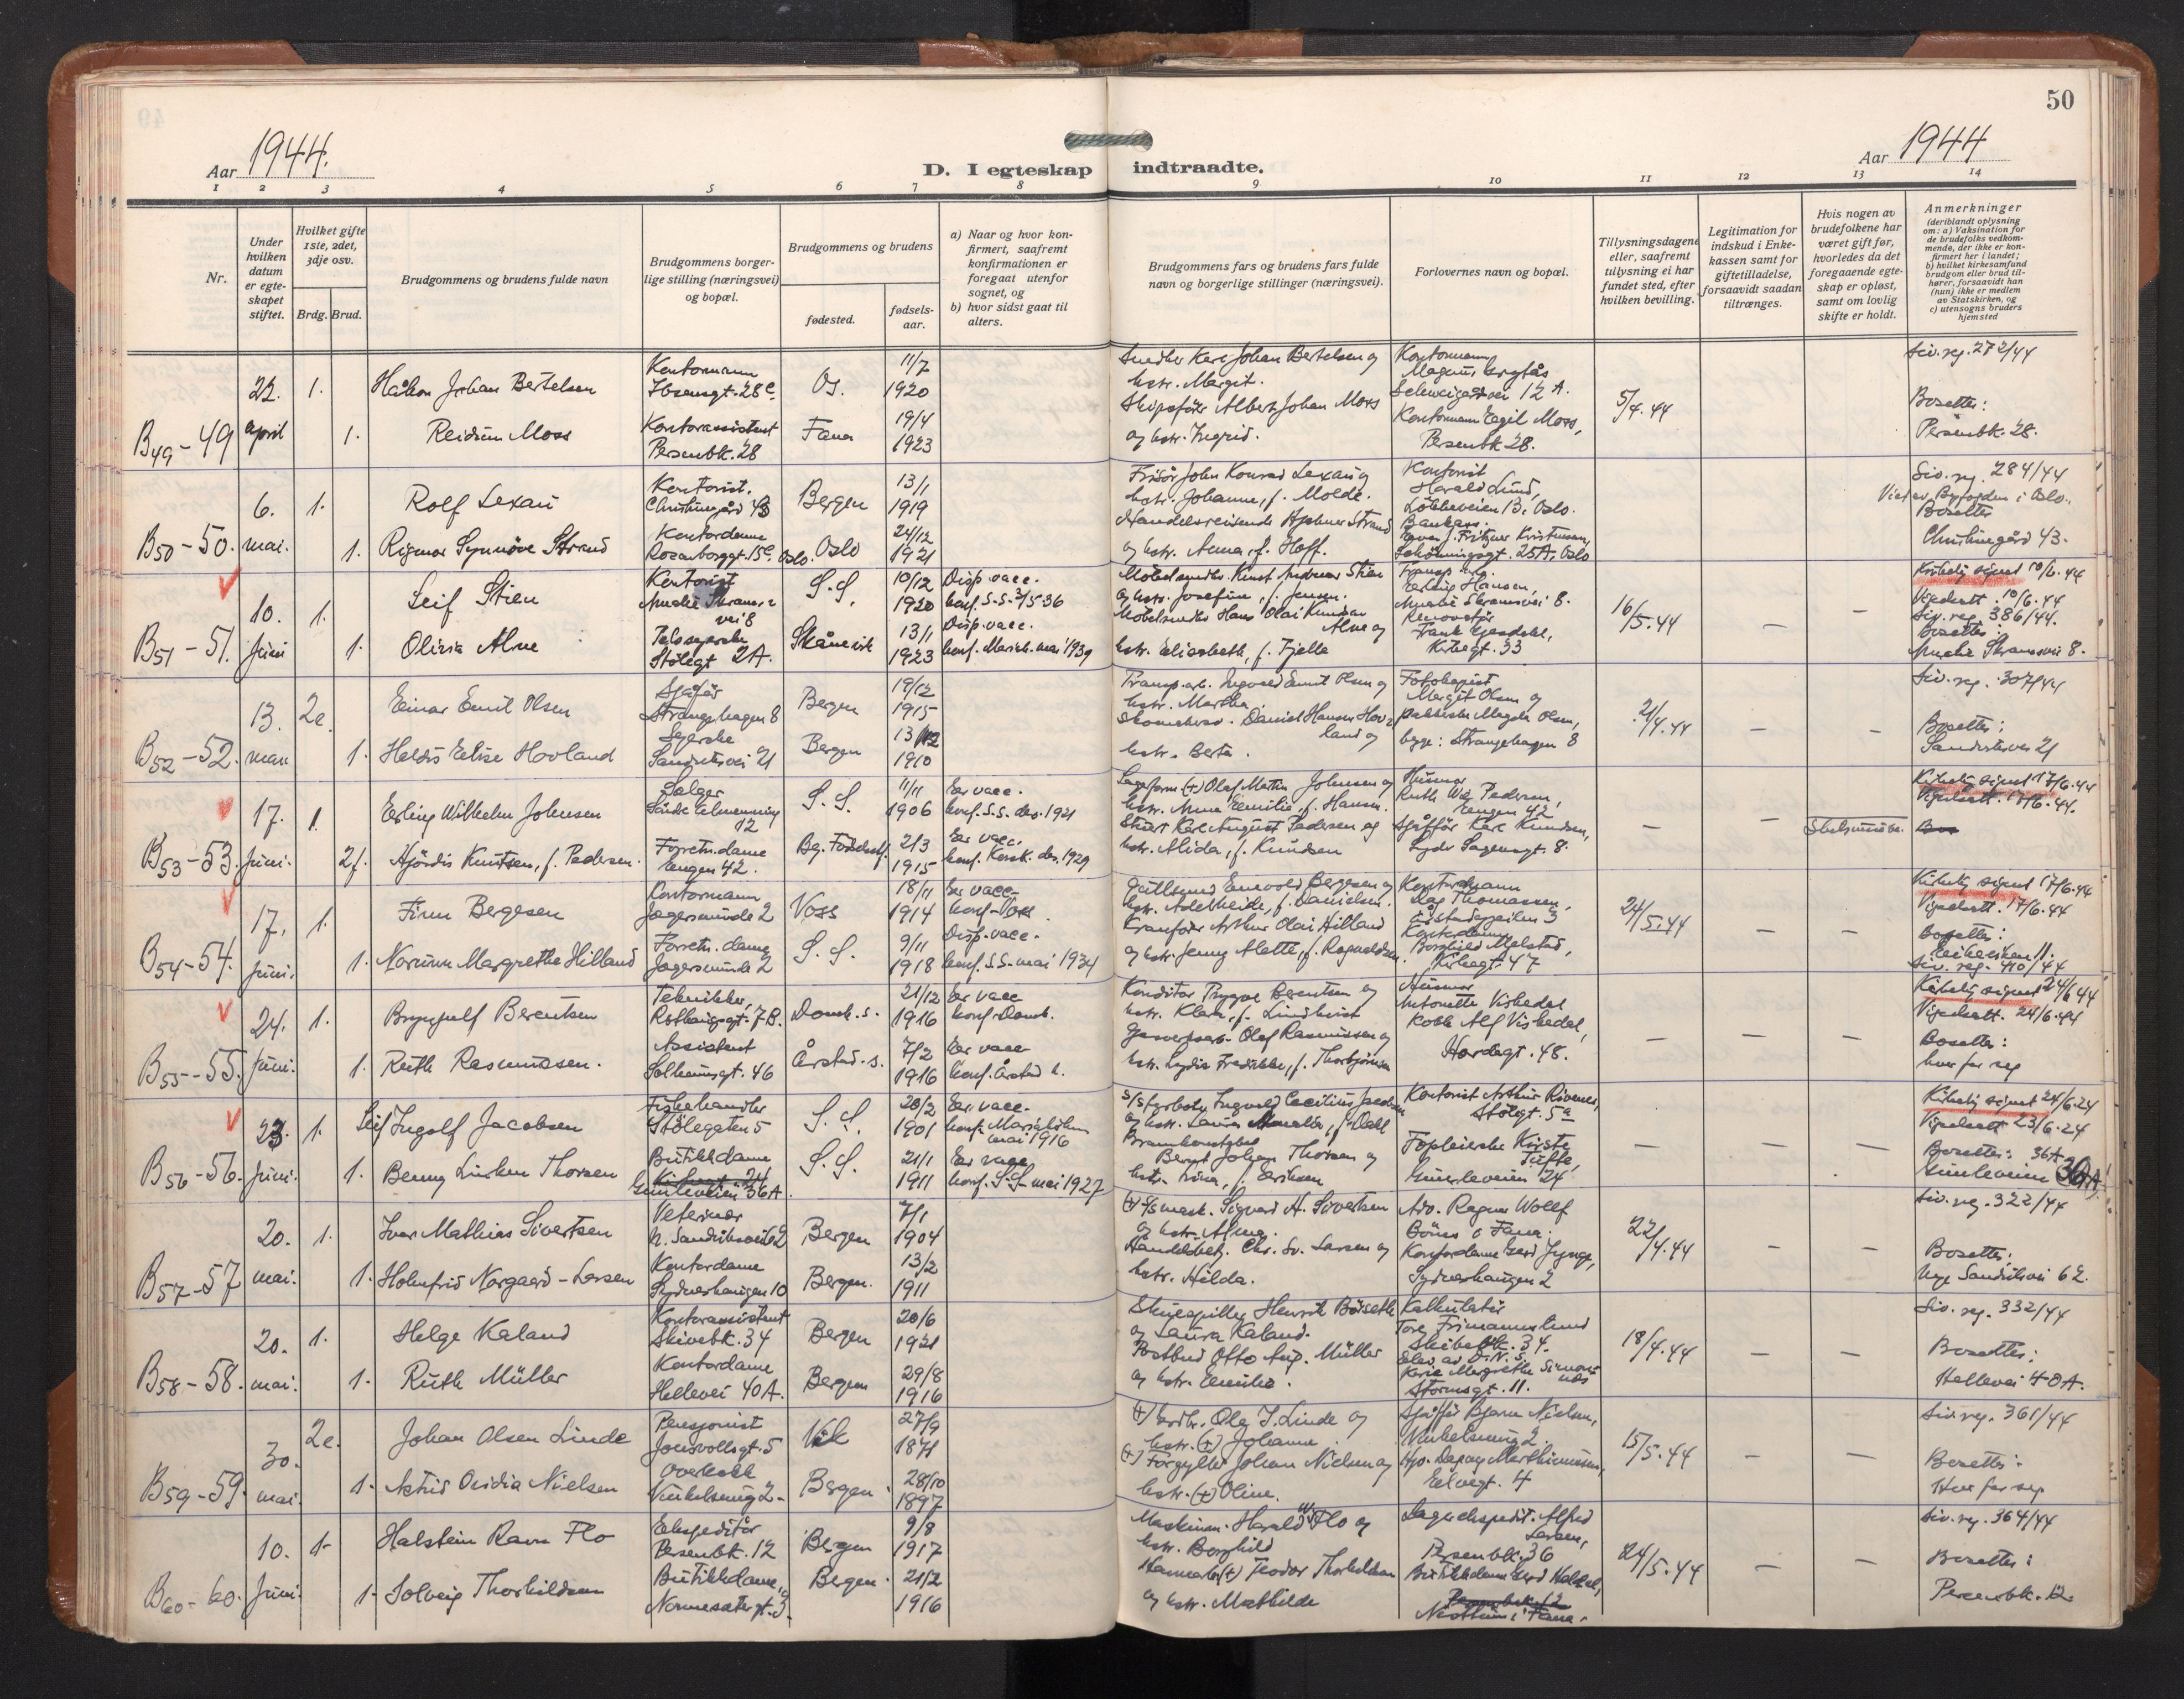 50
Aar 1944.
D. I egteskap indtraadte.
Aar 1944
1 2 3 4 5 6 7 8 9 10 11 12 13 14
Nr.
Under hvilken datum er egteskapet stiftet.
Hvilket gifte 1ste, 2det, 3dje osv.
Brdg. Brud.
Brudgommens og brudens fulde navn
Brudgommens borgerlige stilling (næringsvei) og bopæl.
Brudgommens og brudens
fødested.
fødsels-aar.
a) Naar og hvor konfirmert, saafremt konfirmationen er foregaat utenfor sognet, og
b) hvor sidst gaat til alters.
Brudgommens fars og brudens fars fulde navn og borgerlige stillinger (næringsvei).
Forlovernes navn og bopæl.
Tillysningsdagene eller, saafremt tillysning ei har fundet sted, efter hvilken bevilling.
Legitimation for indskud i Enkekassen samt for giftetilladelse, forsaavidt saadan tiltrænges.
Hvis nogen av brudefolkene har været gift før, hvorledes da det foregaaende egteskap er opløst, samt om lovlig skifte er holdt.
Anmerkninger
(deriblandt oplysning om: a) Vaksination for de brudefolks vedkommende, der ikke er konfirmert her i landet;
b) hvilket kirkesamfund brudgom eller brud tilhører, forsaavidt han (hun) ikke er medlem av Statskirken, og
c) utensogns bruders hjemsted
B49-49
22. april
1. Håkon Johan Bertelsen
Kontormann
Ibsensgt. 28c.
Os.
11/7 1920
1. Reidun Moss
Kontorassistent
Persenbk. 28
Fana
19/4 1923
Smedm. Karl Johan Bertelsen og
hstr. Margit.
Skipsfører Albert Johan Moss
og hstr. Ingrid.
Kontormann
Kontormann Egil Moss,
Persenbk 28.
5/4.44
Siv. reg. 272/44
Bosettes:
Persenbk. 28.
B50-50.
6. mai.
1. Rolf Lexau
Kontorist.
Christinegård 43
Bergen
13/1 1919
1. Rigmor Synnöve Strand
Kontordame
Rosenborggt. 15c. Oslo.
Oslo
24/12 1921
Frisör John Konrad Lexau og
hstr. Johanne, f. Molde.
og hstr. Anna, f. Hoff.
Kontorist
Harald Lund,
Løkkeveien 13, Oslo.
Siv. reg. 284/44
Viet av Byfogden i Oslo.
Bosettes
Christinegård 43.
B51-51.
10. Juni
1. Leif Stien
Kontorist
Amalie Skramsvei 8
S.S.
10/12 1920
Disp. vacc.
konf. S.S. 3/5 36
1. Olivia Alne
Stölegt 2A.
Skånevik
13/1 1923
Disp. vacc.
konf. Mariak. mai 1939
og hstr. Josefine, f. Jensen.
hstr. Elisabeth, f. Fjelle
Erling Hansen,
Amalie Skramsvei 8.
Kirkegt. 33
16/5.44
Kirkelig signet 10/6.44
Vigselsatt. 10/6.44
Siv. reg. 386/44.
Bosettes:
Amalie Skramsvei 8.
B52-52.
13. mai
2e. Einar Emil Olsen
Sjåfør
Strangehagen 8
Bergen
19/12 1915
1. Heldis Elise Hovland
Syerske
Sandviksvei 21
Bergen
13/12 1910
Transp.arb. Ingvald Emil Olsen og
hstr. Martha.
Skomakerm. Daniel Hansen Hovland og
hstr. Berta.
Margit Olsen og
Magda Olsen,
begge: Strangehagen 8
21/4.44
Siv. reg. 307/44
Bosettes:
Sandviksvei 21
B53-53.
17. Juni.
1. Erling Wilhelm Johnsen
Selger
12
S.S.
11/11 1906
Er vacc.
konf. S.S. des. 1921
2f. Hjördis Knutsen, f. Pedersen.
Forretn.dame
Engen 42.
2/3 1915
Er vacc.
konf. Korsk. des. 1929
Olaf Martin Johnsen og
hstr. Anna Emilie, f. Hansen.
Karl August Pedersen og
hstr. Alida, f. Knudsen
Husmor
Ruth Pedersen,
Engen 42
Sjåfør Karl Knudsen,
Lyder Sagensgt. 8.
Kirkelig signet 17/6.44
Vigselsatt. 17/6.44.
B54-54.
17. Juni.
1. Finn Bergesen
Kontormann
Jægersminde 2
Voss
18/11 1914
Er vacc.
konf. Voss
1. Norunn Margrethe Hilland
Forretn. dame
Jægersminde 2
S.S.
9/11 1918
Disp. vacc.
konf. S.S. mai 1934
Gullsmed Enevold Bergesen og
hstr. Adelheide, f. Danielsen.
Kranfører Arthur Olai Hilland
og hstr. Jenny Alette, f. Ragnvaldsen.
Kontormann
Dag Thomassen,
Kontordame
Borghild Mjelstad,
Kirkegt. 47
24/5.44
Kirkelig signet 17/6.44
Vigselsatt. 17/6.44
Bosettes:
Siv. reg. 410/44
B55-55.
24. Juni.
1. Brynjulf Berentsen
Tekniker,
Rothaugsgt. 7B.
Domk. s.
21/12 1916
Er vacc
konf. Domk.
1. Ruth Rasmussen.
Assistent
Solheimsgt. 46
Årstad. s.
7/2 1916
Er vacc
konf. Årstad k.
Konditor Trygve Berentsen og
hstr. Klara, f. Lindkvist
Olaf Rasmussen og
hstr. Lydia Fredrikke, f. Thorbjörnsen
Husmor
Antonette Viskedal
Kokk Alf Viskedal,
Hordagt. 48.
Kirkelig signet 24/6 44
Vigselsatt. 24/6.44
Bosettes:
hver for seg
B56-56.
23. Juni.
1. Leif Ingolf Jacobsen
Fiskehandler
Stölegaten 5
S.S.
20/2 1901
Er vacc.
konf. Mariakirken
mai 1916
1. Benny Linken Thorsen
Butikkdame
Gimleveien 36A
S.S.
21/1 1911
Er vacc.
konf. S.S. mai 1927
Bernt Johan Thorsen og
f. Eriksen
Kontorist Arthur
Stölegt. 5a
Gimleveien 24
Kirkelig signet 24/6.24
Vigselsatt 23/6.24
Bosettes: 36A
Gimleveien 36A
B57-57
20. mai.
1. Ivar Mathias Sivertsen
Veterinær
N. Sandviksvei 62
Bergen
7/1 1904
1. Holmfrid Norgaard-Larsen
Kontordame
Sydneshaugen 10
Bergen.
13/2 1911
(+) S/s mask. Sigurd A. Sivertsen
og hstr. Alma.
Chr. Sv. Larsen og
hstr. Hilda.
Adv. Ragnar Wolff
Bönes i Fana.
Kontordame Gerd Jynge,
Sydneshaugen 2
22/4.44
Siv. reg. 322/44
Bosettes:
Nye Sandviksvei 62.
B58-58.
20. mai.
1. Helge Kaland
Kontorassistent
Skivebk. 34
Bergen
20/6 1921
1. Ruth Müller
Kontordame
Hellevei 40A.
Bergen
29/8 1916
Skuespiller Henrik Börseth
og Laura Kaland.
Postbud Otto Aug. Müller
og hstr. Emilie.
Kalkulatör
Tor Frimannslund
Skivebk. 34.
Stormsgt. 11.
18/4.44
Siv. reg. 332/44
Bosettes:
Hellevei 40A.
B59-59.
30. mai.
2e. Johan Olsen Linde
Pensjonist
Jonsvollsgt. 5
Vik
27/9 1871
1. Astrid Ovidia Nielsen
Overkokk
Vinkelsmug 2-
Bergen.
28/10 1897
(+) Ole J. Linde og
hstr. (+) Johanne.
(+) Forgyller Johan Nielsen og
hstr. (+) Oline.
Sjåfør Bjarne Nielsen,
Vinkelsmug 2.
15/5.44
Siv. reg. 361/44
Bosettes:
Hver for seg
B60-60.
10. Juni.
1. Halstein Ravn Flo
Ekspeditör
Persenbk. 12
Bergen
9/8 1917
1. Solveig Thorkildsen
Butikkdame,
Bergen.
21/2 1916
Maskinm. Harald Flo og
hstr. Borghild
(+) Teodor Thorkildsen
og hstr. Mathilde
Lagerekspedit. Alfred
Larsen,
Persenbk. 36
Nesttun i Fana.
24/5.44
Siv. reg. 364/44
Bosettes:
Persenbk. 12.